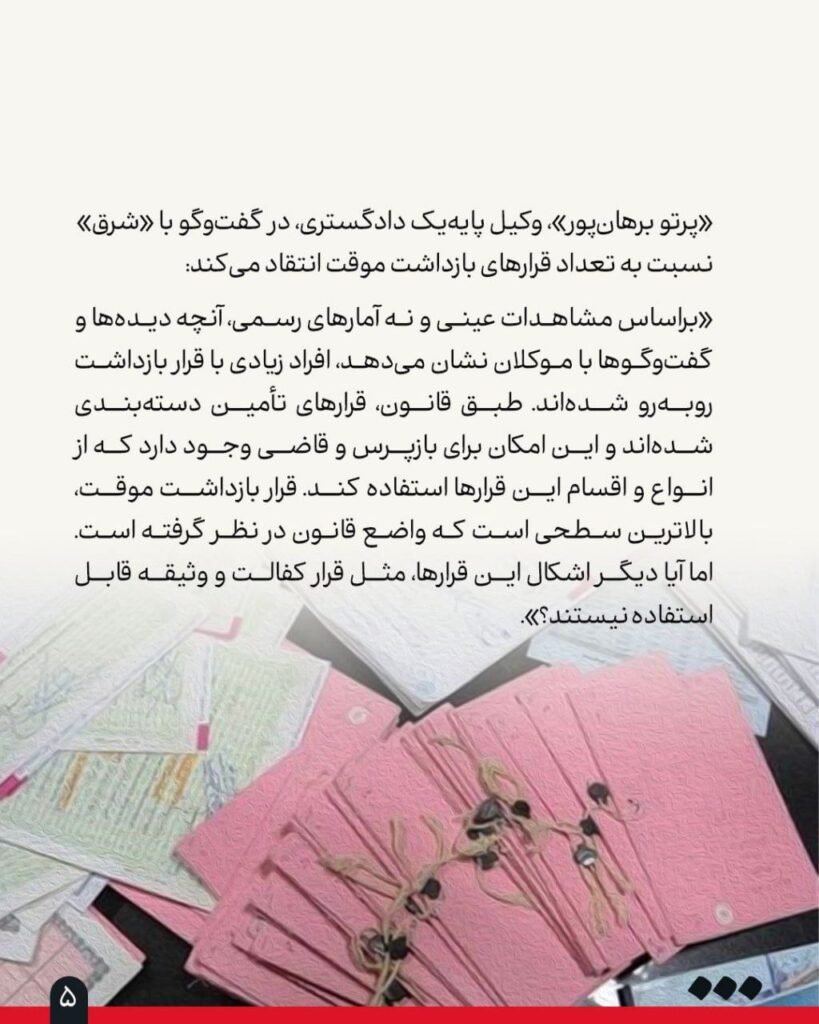 «پرتو برهان‌پور»، وکیل پایه‌یک دادگستری، در گفت‌وگو با «شرق»
نسبت به تعداد قرارهای بازداشت موقت انتقاد می‌کند:
«براساس مشاهدات عینی و نه آمارهای رسمی، آنچه دیده‌ها و
گفت‌وگوها با موکلان نشان می‌دهد، افراد زیادی با قرار بازداشت
روبه‌رو شده‌اند. طبق قانون، قرارهای تأمین دسته‌بندی
شده‌اند و این امکان برای بازپرس و قاضی وجود دارد که از
انواع و اقسام این قرارها استفاده کند. قرار بازداشت موقت،
بالاترین سطحی است که واضع قانون در نظر گرفته است.
اما آیا دیگر اشکال این قرارها، مثل قرار کفالت و وثیقه قابل
استفاده نیستند؟».
۵